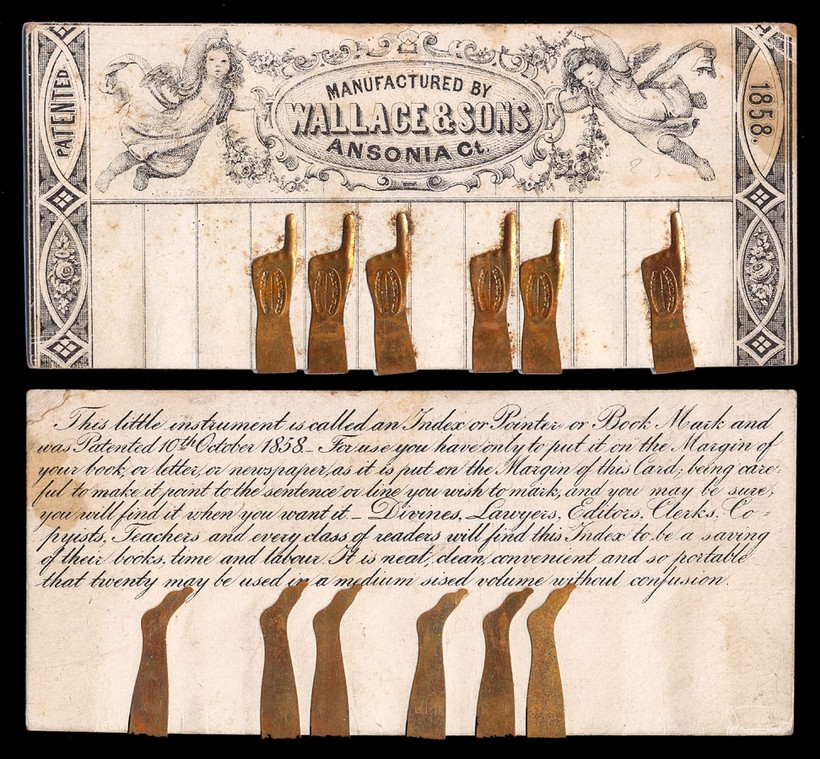 PATENTED.
MANUFACTURED BY
WALLACE & SONS
ANSONIA Ct.
1858.
This little instrument is called an Index or Pointer or Book Mark and
was Patented 10th October 1858 _ For use you have only to put it on the Margin of
your book, or letter, or newspaper, as it is put on the Margin of this Card; being care:
ful to make it point to the sentence or line you wish to mark, and you may be sure,
you will find it when you want it _ Divines, Lawyers, Editors, Clerks, Co-
pyists, Teachers and every class of readers will find this Index to be a saving
of their books, time and labour. It is neat, clean, convenient and so portable
that twenty may be used in a medium sised volume without confusion.